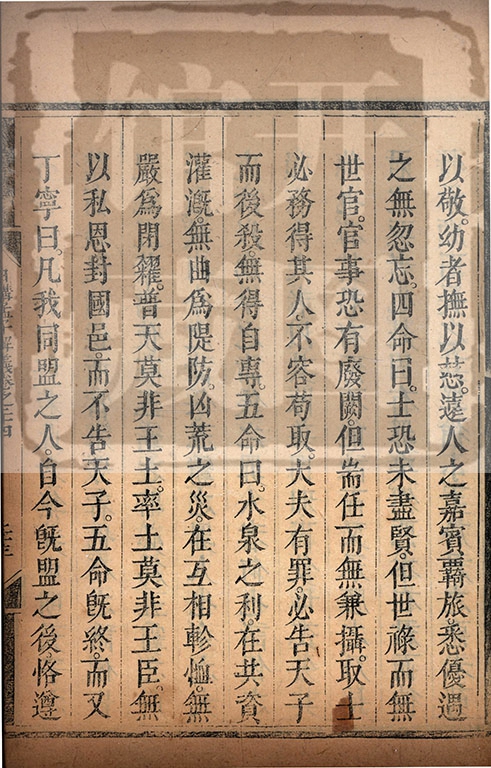 以敬。幼者撫以慈。遠人之嘉賓羇旅。悉優遇
之無忽忘。四命曰。士恐未盡賢。但世祿而無
世官。官事恐有廢闕。但耑任而無兼攝。取士
必務得其人。不容苟取。大夫有罪。必告天子
而後殺。無得自專。五命曰。水泉之利。在共資
灌漑。無曲爲隄防。凶荒之災。在互相軫恤。無
嚴爲閉糴。普天莫非王土。率土莫非王臣。無
以私恩封國邑。而不告天子。五命旣終。而又
丁寧曰。凡我同盟之人。自今旣盟之後。恪遵